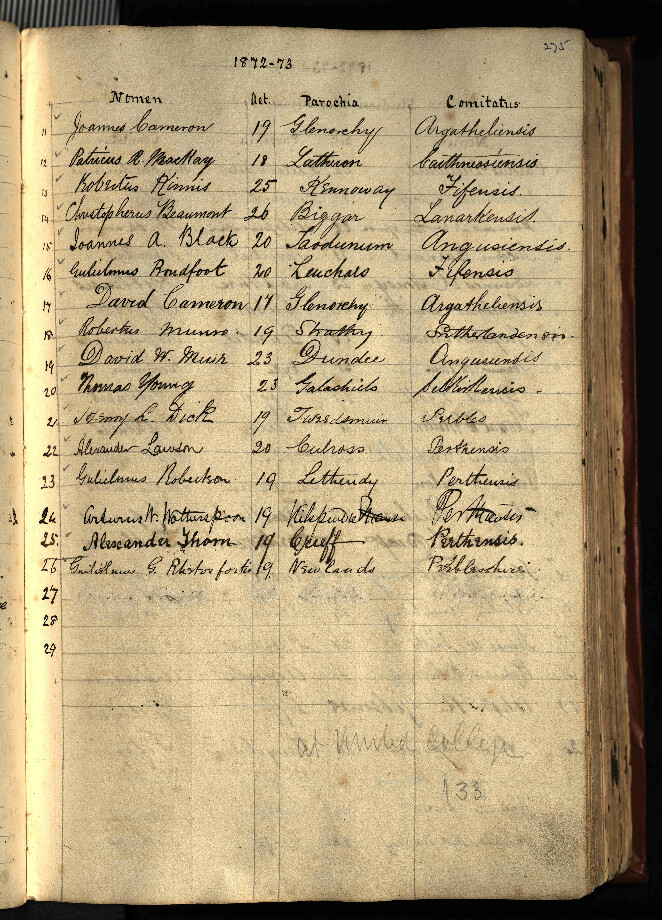 275
1872-73
Nomen Aet. Parochia Comitatus
11 Joannes Cameron 19 Glenorchy Argatheliensis
12 Patricius R. MacKay 18 Lathron Caithnesiensis
13 Robertus Kinnis 25 Kennoway Fifensis.
14 Christopherus Beaumont 26 Biggar Lanarkensis.
15 Ioannes A. Black 20 Taodunum Angusiensis.
16 Gulielmus Proudfoot 20 Leuchars Fifensis
17 David Cameron 17 Glenorchy Argatheliensis
18 Robertus Munro. 19 Strathy
19 David W. Muir 23 Dundee Angusiensis
20 Thomas Young 23 Galashiels
21 Henry L. Dick 19 Tweedsmuir Peebles
22 Alexander Lawson 20 Culross Perthensis
23 Gulielmus Robertson 19 Lethendy Perthensis
24 Arturus W. Wotherspoon 19
25 Alexander Thom 19 Crieff Perthensis.
26 G. 19 Newlands Peeblesshire.
27
28
29
at United College
133